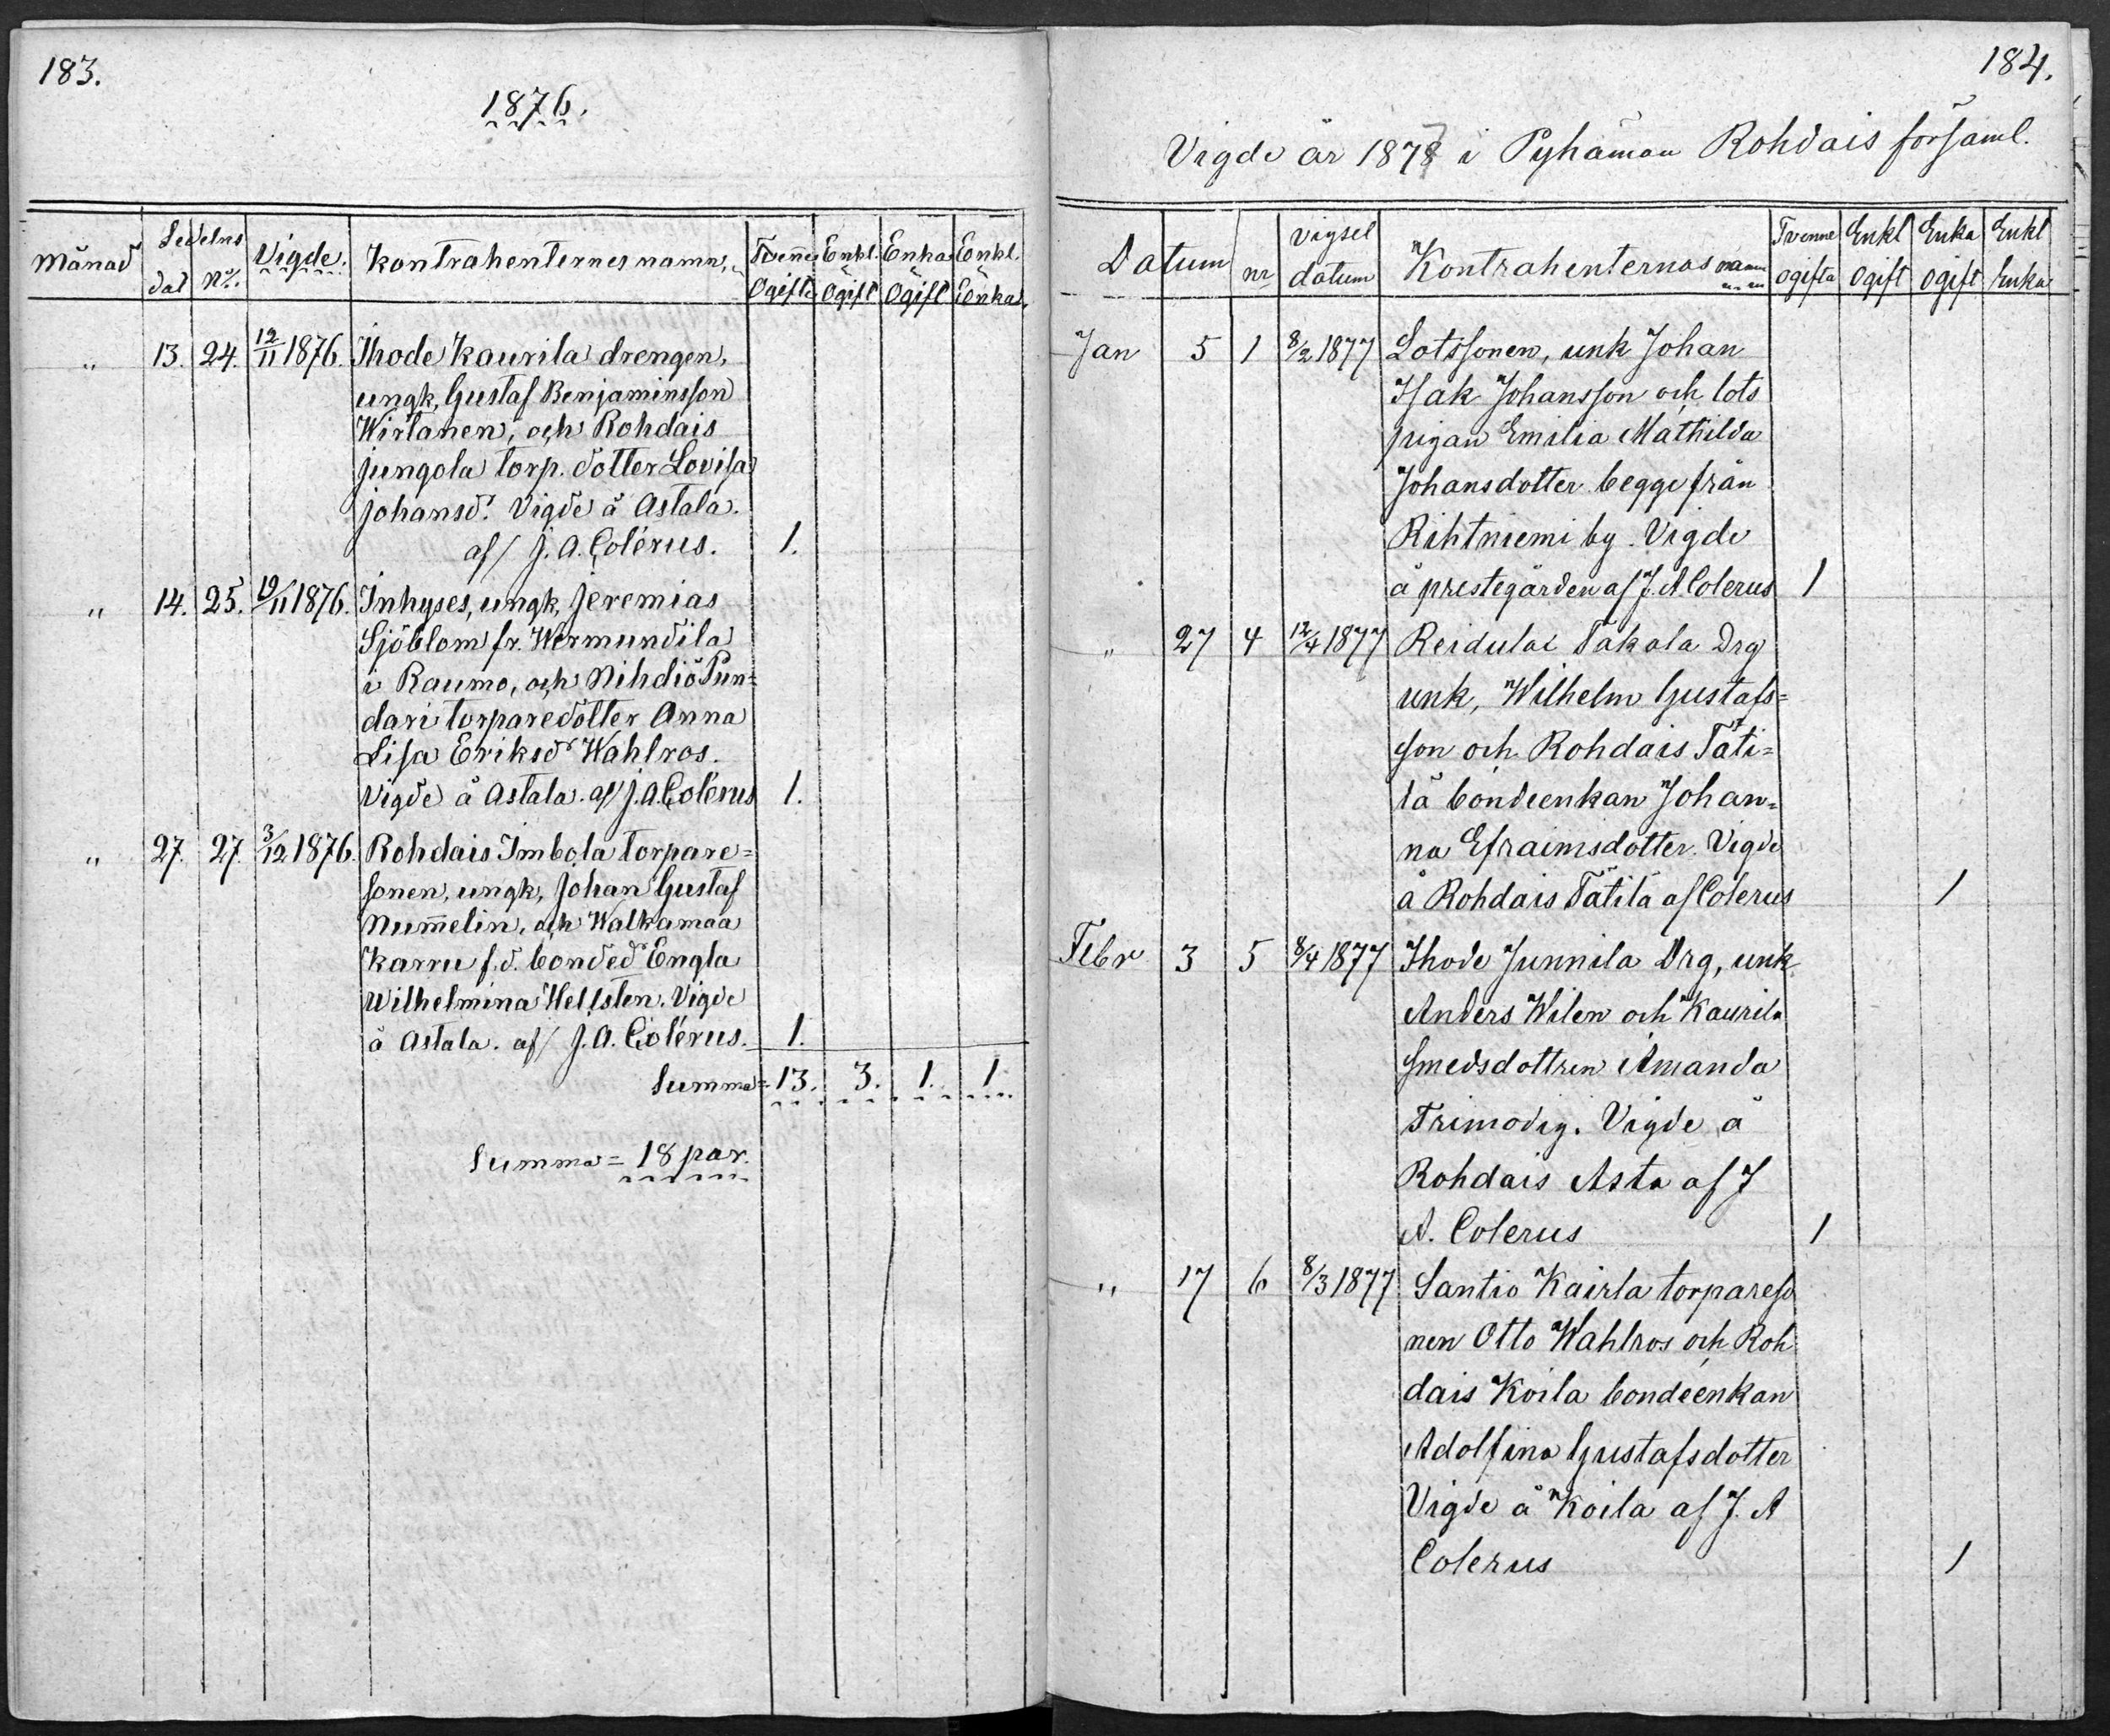 183.
1876.
Månad
Sedelns
dat N:o.
Vigde.
Kontrahenternes namn.
Tvenne Ogifta
Enkl. Ogift
Enka Ogift
Enkl. Enka
" 13. 24. 12/11 1876. Ihode Kaurila drengen,
ungk, Gustaf Benjaminsson
Wirtanen, och Rohdais
Jungola torp. dotter Lovisa
Johansd:r Vigde å Astala.
af/ J. A. Colérus. 1.
" 14. 25. 19/11 1876. Inhyses, ungk, Jeremias
Sjöblom fr. Wermundila
i Raumo, och Nihdiö Pun=
dari torparedotter Anna
Lisa Eriksdr Wahlros.
Vigde å Astala. af/ J. A. Colérus 1.
" 27. 27. 3/12 1876. Rohdais Imbola torpare=
sonen, ungk, Johan Gustaf
Num̄elin, och Walkamaa
Karru f.d. bonded:r Engla
Wilhelmina Hellsten. Vigde
å Astala. af/ J. A. Colérus. 1.
Summa= 13. 3. 1. 1.
Summa= 18 par.
184.
Vigde år 1877 i Pyhämaa Rohdais församl.
Datum
nr
vigsel datum
Kontrahenternas namn
Tvenne ogifta
Enkl ogift
Enka ogift
Enkl Enka
Jan 5 1 8/2 1877 Lotssonen, unk Johan
Isak Johansson och lots
pigan Emilia Mathilda
Johansdotter begge från
Rihtniemi by. Vigde
å prestegården af J. A Colerus 1
" 27 4 12/4 1877 Reidula Takala Drg
unk, Wilhelm Gustafs=
son och Rohdais Täti=
lä bondeenkan Johan=
na Efraimsdotter. Vigde
å Rohdais Tätilä af Colerus 1
Febr 3 5 8/4 1877 Ihode Junnila Drg, unk
Anders Wilen och Kaurila
smedsdottren Amanda
Trimodig. Vigde å
Rohdais Asta af J
A. Colerus 1
" 17 6 8/3 1877 Santio Kairla torpareso
nen Otto Wahlros och Roh
dais Koila bondeenkan
Adolfina Gustafsdotter
Vigde å Koila af J. A
Colerus 1